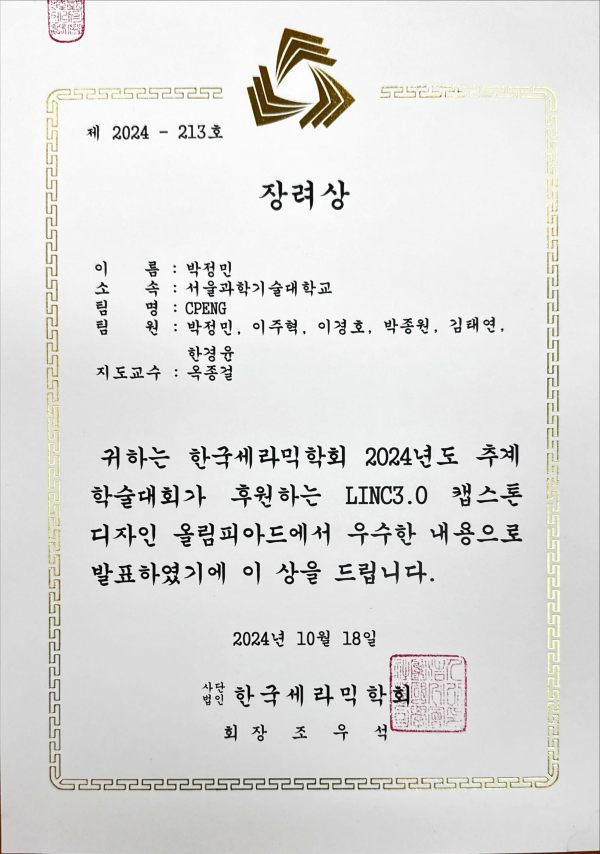 제 2024 - 213호
장려상
이 름 : 박정민
소 속 : 서울과학기술대학교
팀 명 : CPENG
팀 원 : 박정민, 이주혁, 이경호, 박종원, 김태연,
한경윤
지도교수 : 옥종걸
귀하는 한국세라믹학회 2024년도 추계
학술대회가 후원하는 LINC3.0 캡스톤
디자인 올림피아드에서 우수한 내용으로
발표하였기에 이 상을 드립니다.
2024년 10월 18일
사단
법인 한국세라믹학회
회장 조우석